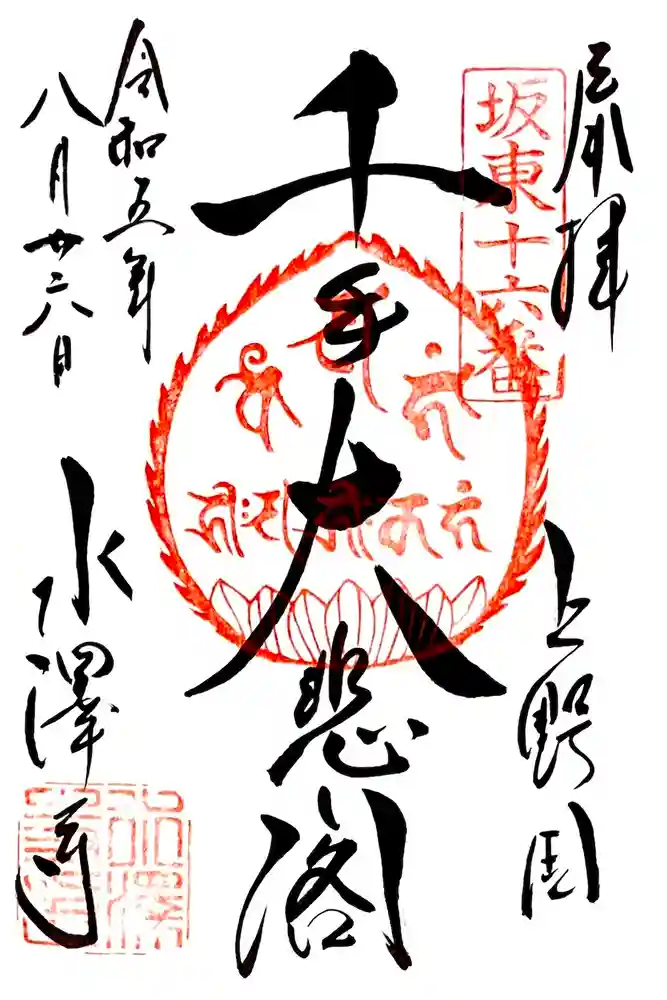 奉拝
上野国
坂東十六番
千手大悲閣
令和五年
八月廿六日
水澤寺